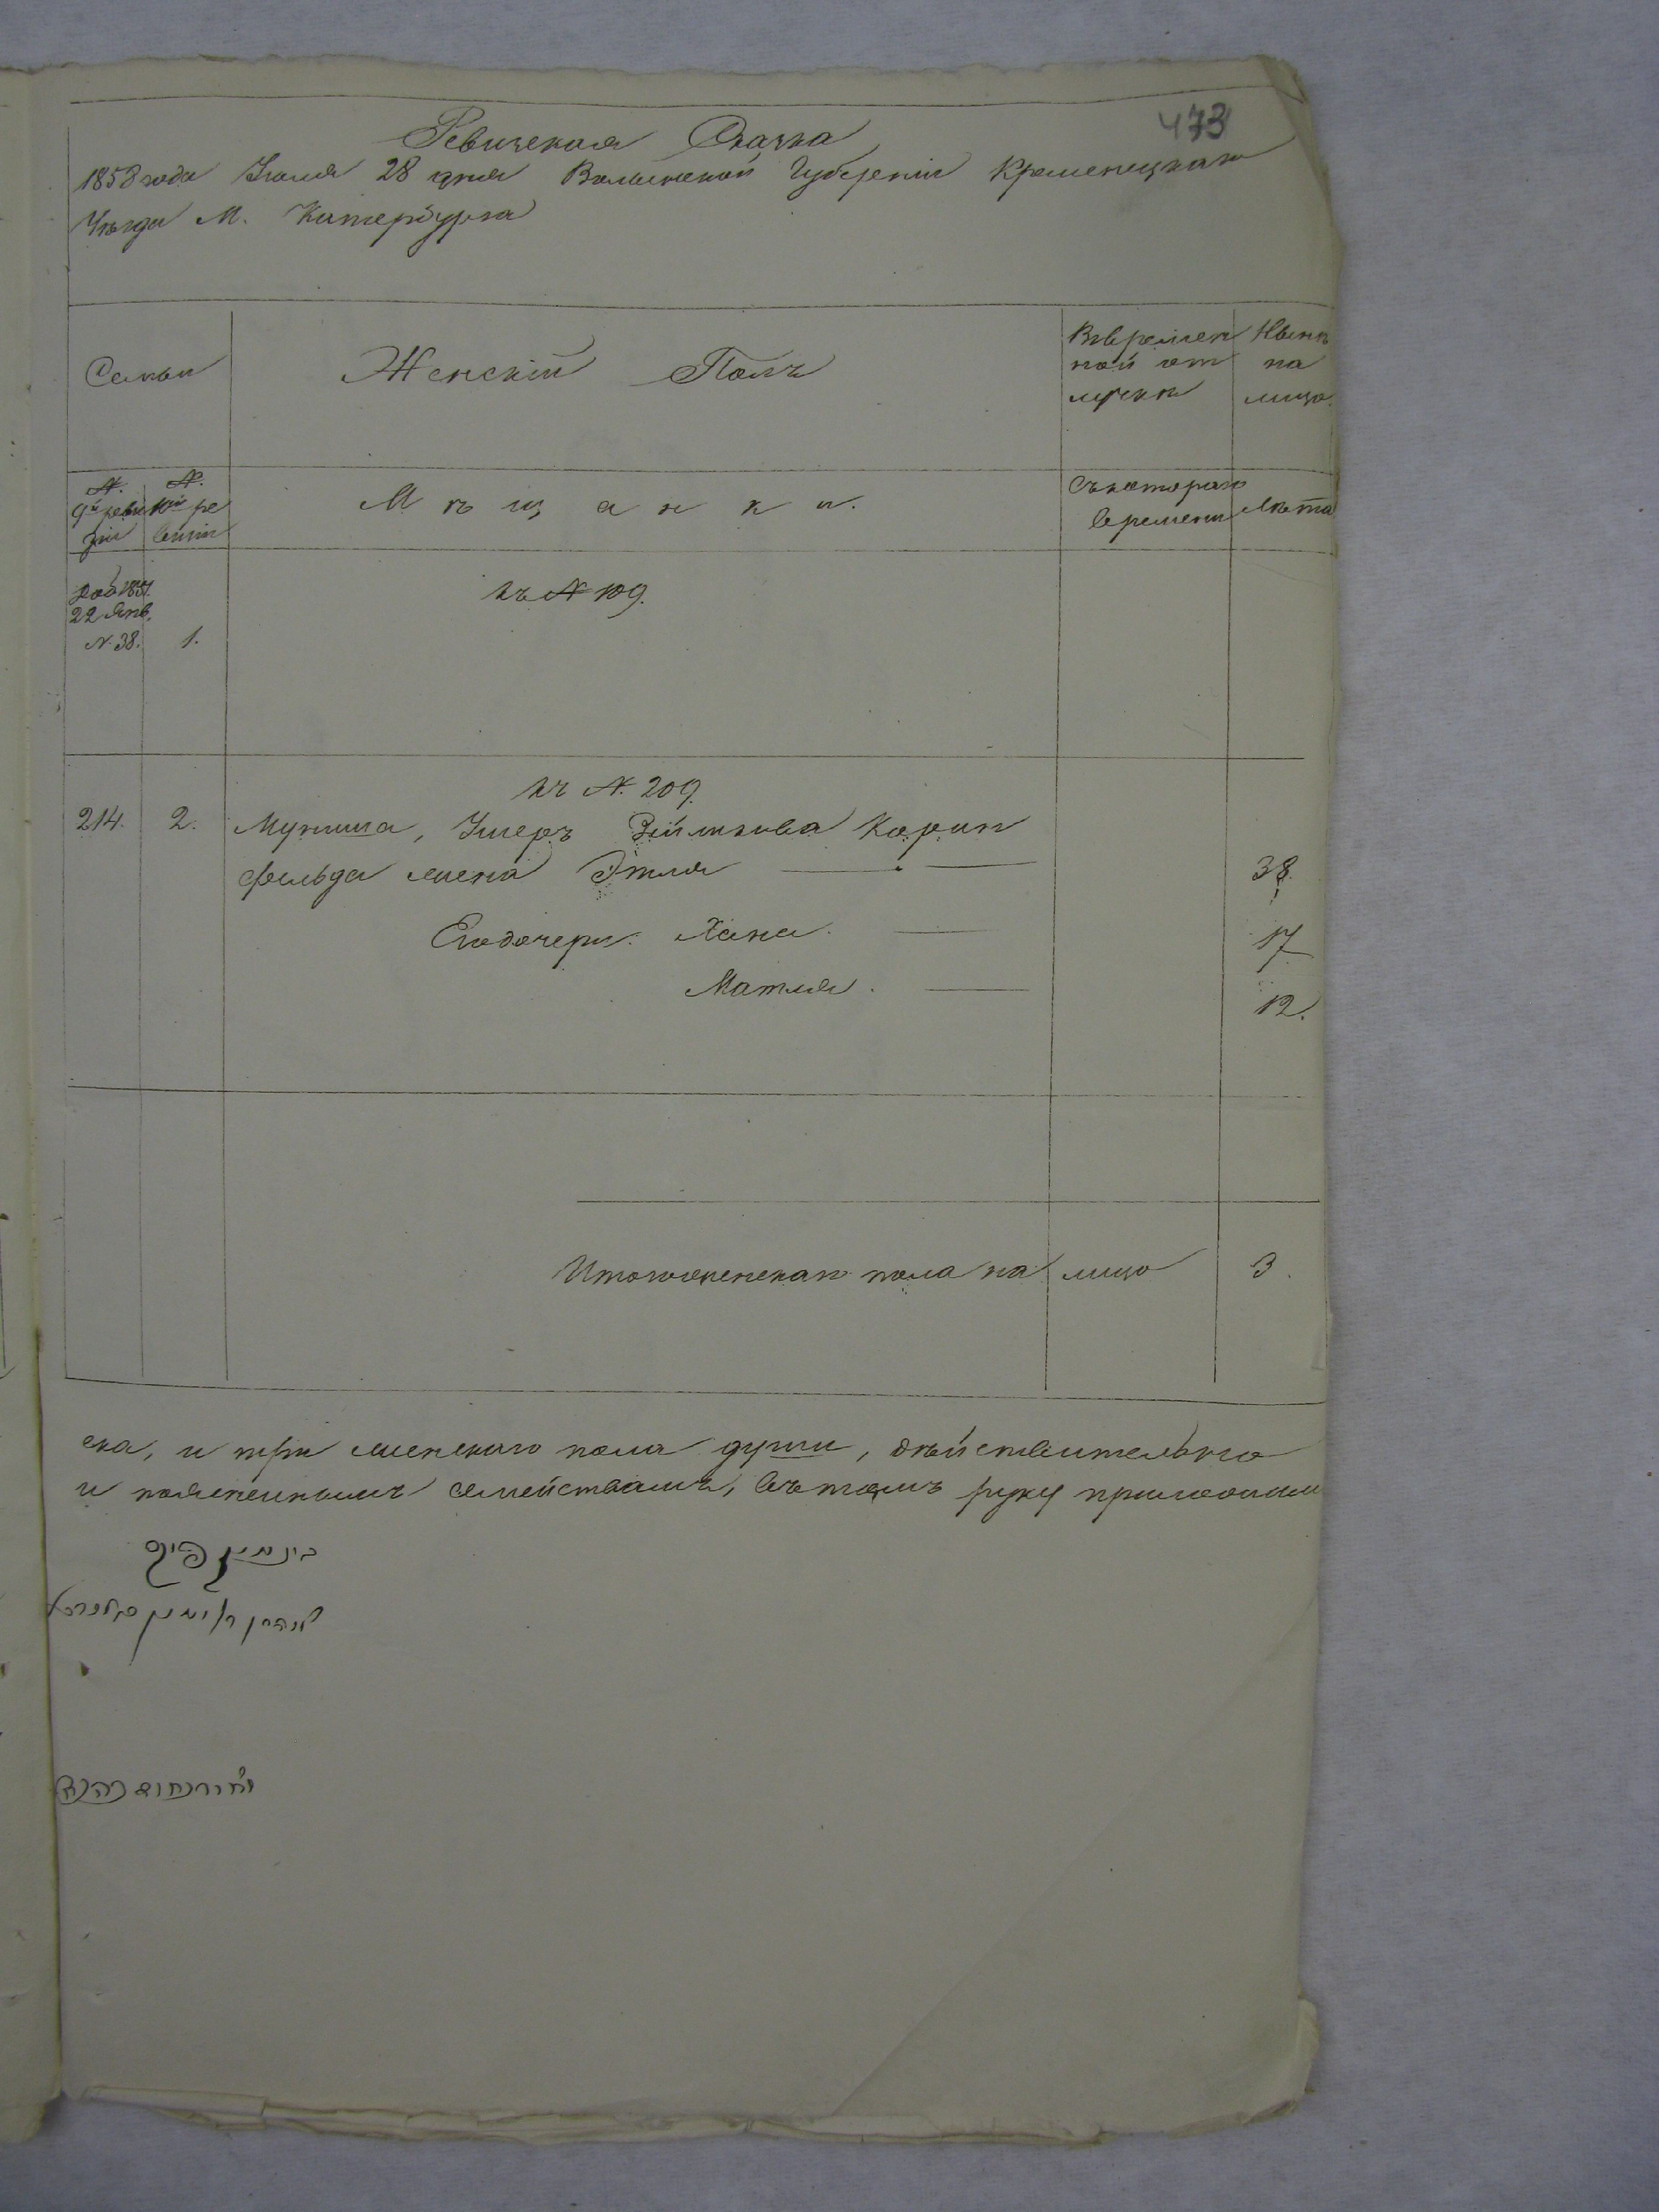 473
Ревизская Сказка
1858 года Іюля 28 дня Волынской Губерніи Кременецкаго
Уѣзда М. Катербурга
Семьи
Женскій Полъ
Въ времен Нынѣ
ной от на
лучкѣ лицо.
N. N.
9й реви 10й ре
зіи визіи
Мѣщанки.
Съ котораго
времени Лѣта
Доб 1851.
22 Янв.
N. 38. 1.
къ N 109.
къ N. 209.
214. 2. Мунища, Імеръ Зейликова Корин
фельда жена Этля 38.
Его дочери: Хана. 17
Матля. 12.
Итого женскаго пола на лицо 3.
ска, и три женскаго пола души, дѣйствительно
и поясненнымъ семействамъ, въ томъ руку приложили
בנימין